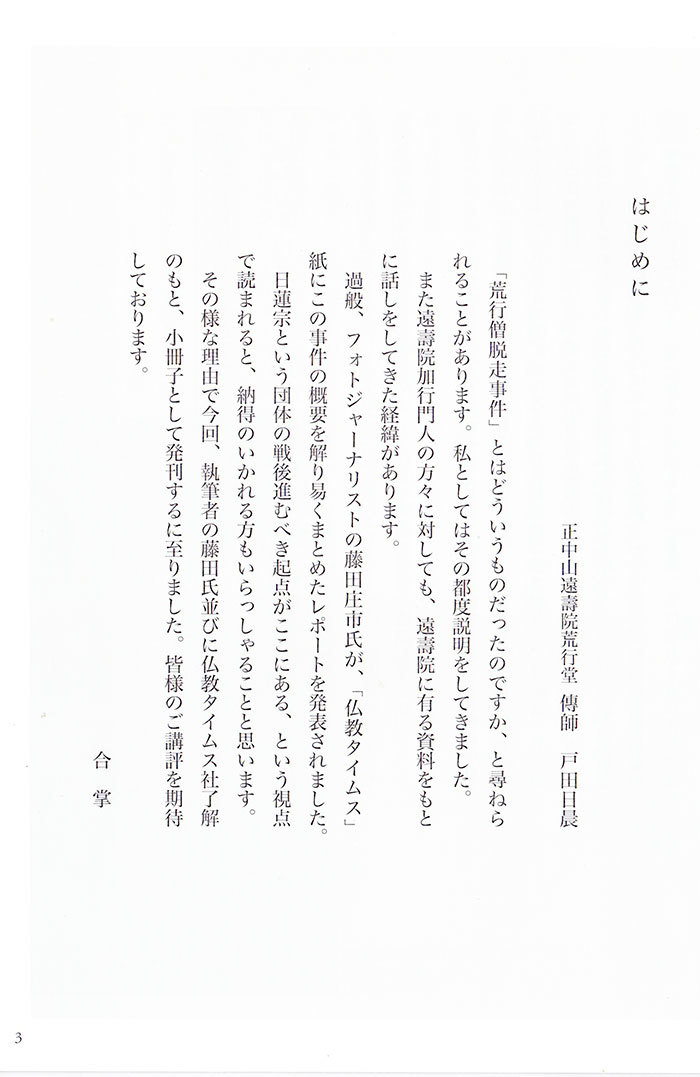 はじめに
正中山遠壽院荒行堂　傳師　戸田日晨
「荒行僧脱走事件」とはどういうものだったのですか、と尋ねら
れることがあります。私としてはその都度説明をしてきました。
また遠壽院加行門人の方々に対しても、遠壽院に有る資料をもと
に話しをしてきた経緯があります。
過般、フォトジャーナリストの藤田庄市氏が、「仏教タイムス」
紙にこの事件の概要を解り易くまとめたレポートを発表されました。
日蓮宗という団体の戦後進むべき起点がここにある、という視点
で読まれると、納得のいかれる方もいらっしゃることと思います。
その様な理由で今回、執筆者の藤田氏並びに仏教タイムス社了解
のもと、小冊子として発刊するに至りました。皆様のご講評を期待
しております。
合　掌
3